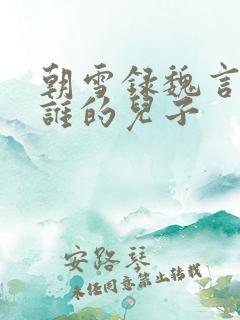 朝雪録魏言
誰的兒子
安路琴
未经同意禁止转载